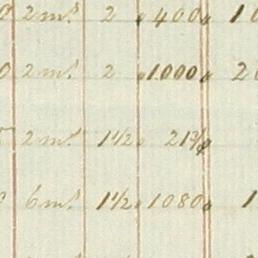 0 2 ms 2 400 1
0 2 ms 2 1000 20
2 ms 1 1/2 21
6 ms 1 1/2 1080 1